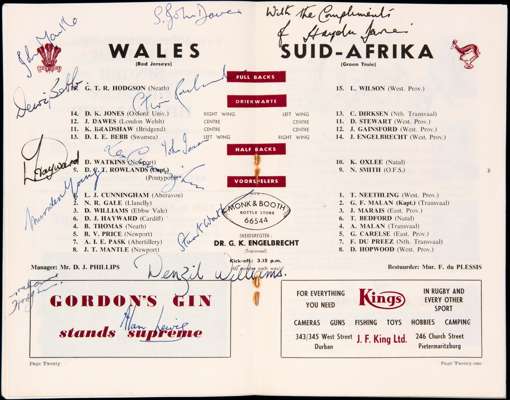 S. John Dawes
With the Compliments
of Haydn
WALES
(Red Jerseys)
SUID-AFRIKA
(Groen Truie)
FULL BACKS
15. G. T. R. HODGSON (Neath)
15. L. WILSON (West. Prov.)
DRIEKWARTE
14. D. K. JONES (Oxford Univ.) RIGHT WING LEFT WING 13. C. DIRKSEN (Nth. Transvaal)
12. J. DAWES (London Welsh) CENTRE CENTRE D. STEWART (West. Prov.)
11. K. BRADSHAW (Bridgend) CENTRE CENTRE J. GAINSFORD (West. Prov.)
13. D. I. E. BEBB (Swansea) LEFT WING RIGHT WING 14. J. ENGELBRECHT (West. Prov.)
HALF BACKS
D. WATKINS (Newport)
K. OXLEE (Natal)
D. C. T. ROWLANDS (Capt.)
(Pontypool)
N. SMITH (O.F.S.)
VOORSPELERS
L. J. CUNNINGHAM (Aberavon)
T. NEETHLING (West. Prov.)
N. R. GALE (Llanelly)
G. F. MALAN (Kapt.) (Transvaal)
D. WILLIAMS (Ebbw Vale)
J. MARAIS (East. Prov.)
D. J. HAYWARD (Cardiff)
T. BEDFORD (Natal)
B. THOMAS (Neath)
A. MALAN (Transvaal)
B. V. PRICE (Newport)
G. CARELSE (East. Prov.)
A. I. E. PASK (Abertillery)
F. DU PREEZ (Nth. Transvaal)
J. T. MANTLE (Newport)
D. HOPWOOD (West. Prov.)
MONK & BOOTH
BOTTLE STORE
66544
SKEIDSREGTER
DR. G. K. ENGELBRECHT
(Transvaal)
Kick-off: 3.15 p.m.
Dewi Bebb
D Hayward
Stuart Watkins
Denzil Williams.
Manager: Mr. D. J. PHILLIPS
Bestuurder: Mnr. F. du PLESSIS
GORDON'S GIN
stands supreme
Alan Lewis
FOR EVERYTHING
YOU NEED
Kings
IN RUGBY AND
EVERY OTHER
SPORT
CAMERAS GUNS FISHING TOYS HOBBIES CAMPING
343/345 West Street
Durban
J. F. KING Ltd.
246 Church Street
Pietermaritzburg
Page Twenty
Page Twenty-one